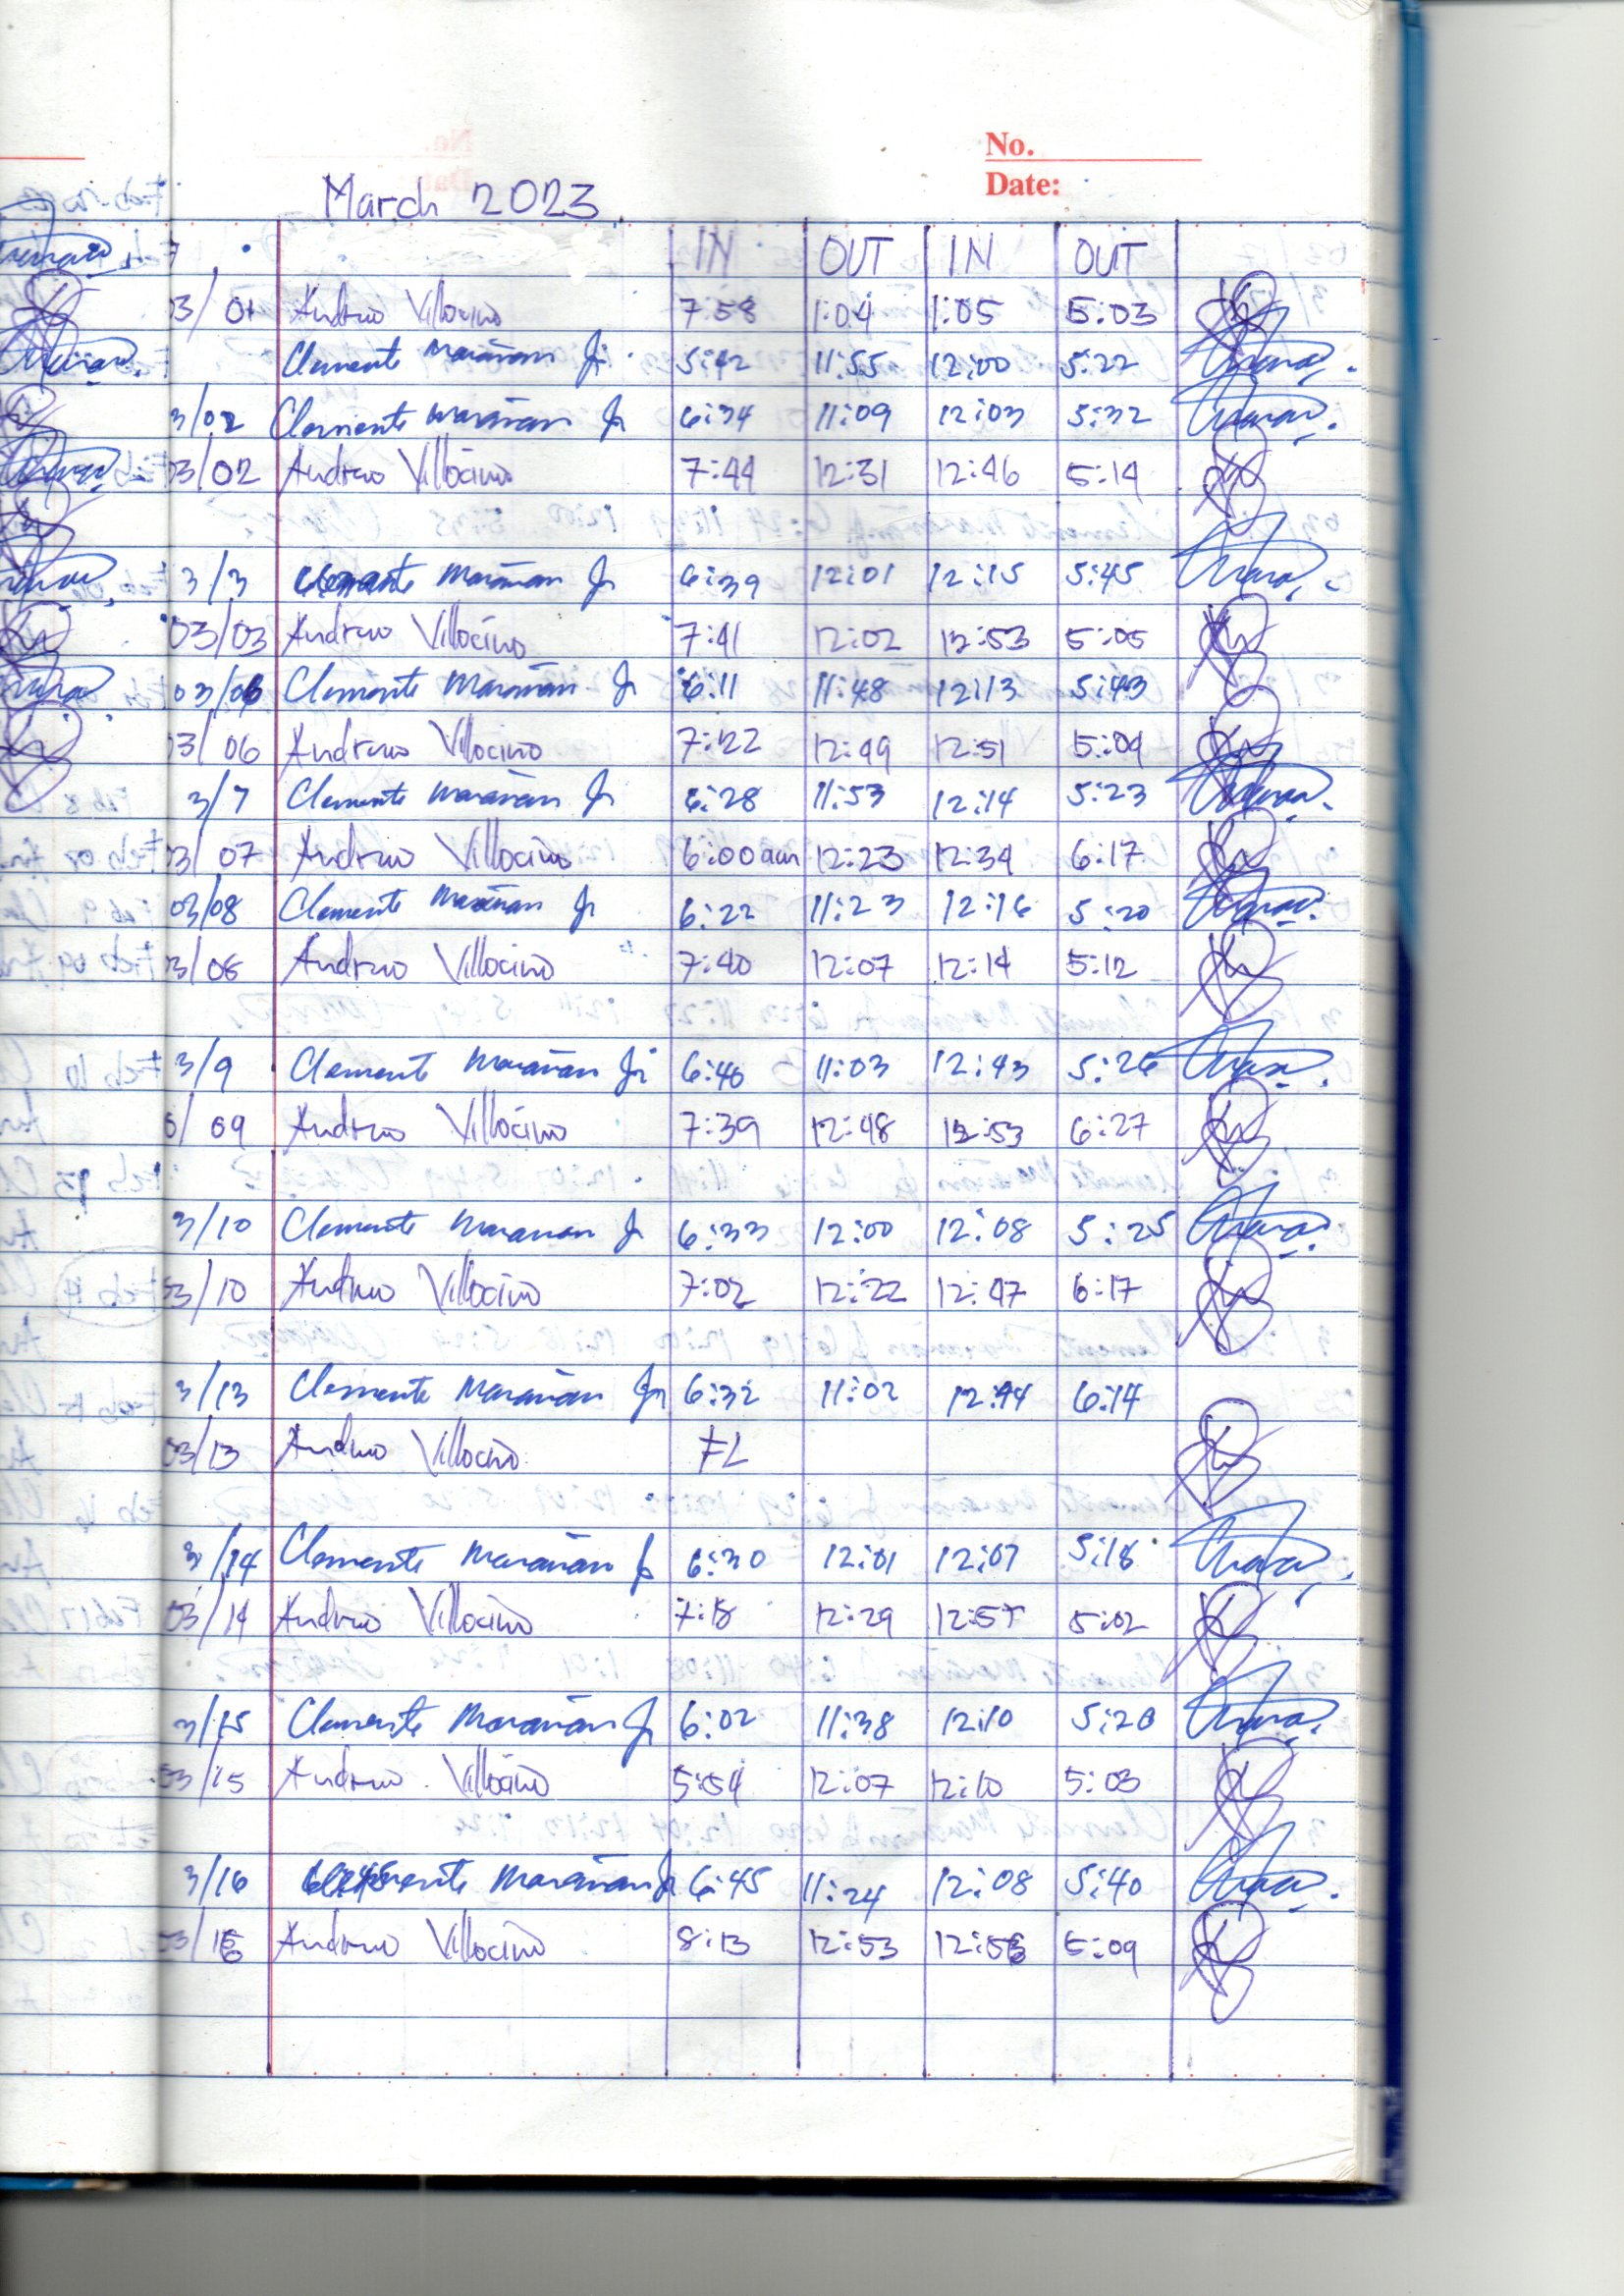 No.
Date:
March 2023
IN OUT IN OUT
03/01 Andrew Villocino 7:58 1:04 1:05 5:03
Clemente Marañan Jr. 5:42 11:55 12:00 5:22
3/02 Clemente Marañan Jr 6:34 11:09 12:03 5:32
03/02 Andrew Villocino 7:44 12:31 12:46 5:14
3/3 Clemente Marañan Jr 6:39 12:01 12:15 5:45
03/03 Andrew Villocino 7:41 12:02 12:53 5:05
03/06 Clemente Marañan Jr 6:11 11:48 12:13 5:43
03/06 Andrew Villocino 7:22 12:49 12:51 5:04
3/7 Clemente Marañan Jr 6:28 11:53 12:14 5:23
03/07 Andrew Villocino 6:00am 12:23 12:34 6:17
03/08 Clemente Marañan Jr 6:22 11:23 12:16 5:20
03/08 Andrew Villocino 7:40 12:07 12:14 5:12
3/9 Clemente Marañan Jr 6:40 11:03 12:43 5:26
/09 Andrew Villocino 7:39 12:48 12:53 6:27
3/10 Clemente Marañan Jr 6:33 12:00 12:08 5:25
03/10 Andrew Villocino 7:02 12:22 12:47 6:17
3/13 Clemente Marañan Jr 6:32 11:02 12:44 6:14
03/13 Andrew Villocino FL
3/14 Clemente Marañan Jr 6:30 12:01 12:07 5:18
03/14 Andrew Villocino 7:18 12:29 5:02
3/15 Clemente Marañan Jr 6:02 11:38 12:10 5:20
03/15 Andrew Villocino 5:54 12:07 12:10 5:03
3/16 Clemente Marañan Jr 6:45 11:24 12:08 5:40
03/16 Andrew Villocino 8:13 12:53 5:09